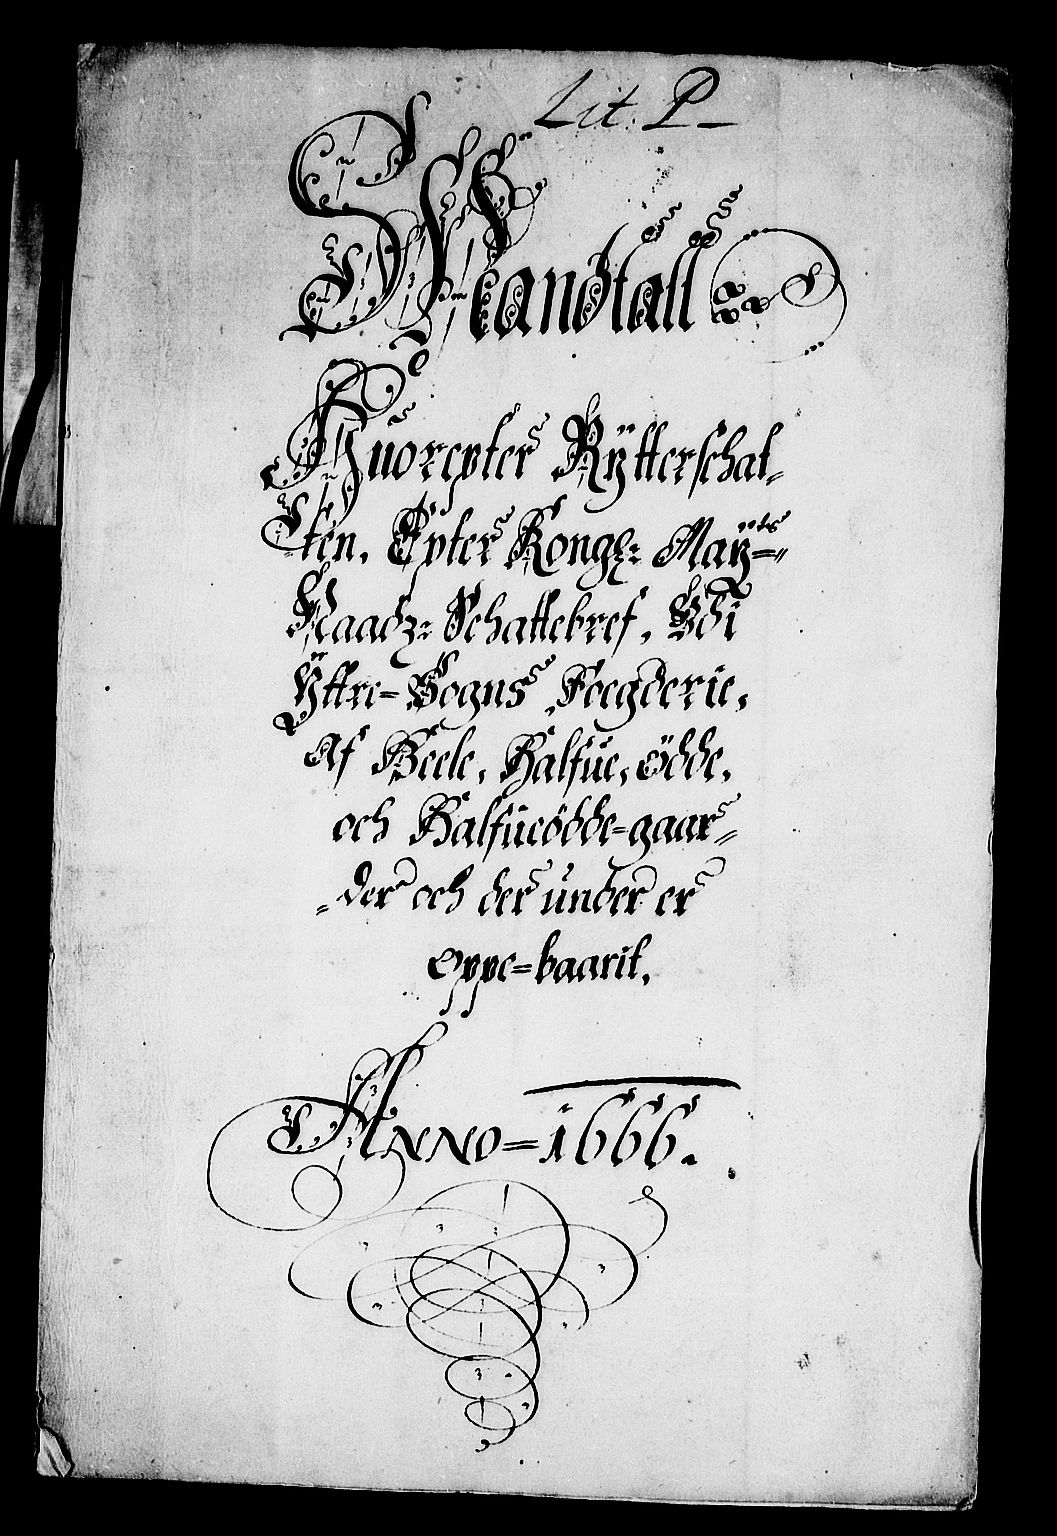 Lit: P
Mandtall
Huorepter Rÿtterschat-
ten. Epter Kongl: Maÿ=ts
Naadz: Schattebref, Vdi
Ÿttre-Sogns Foegderie,
Af Heele, Halfue, Ödde,
och Halfueödde-gaar-
der och der under er
oppe=baarit.
Anno=1666.